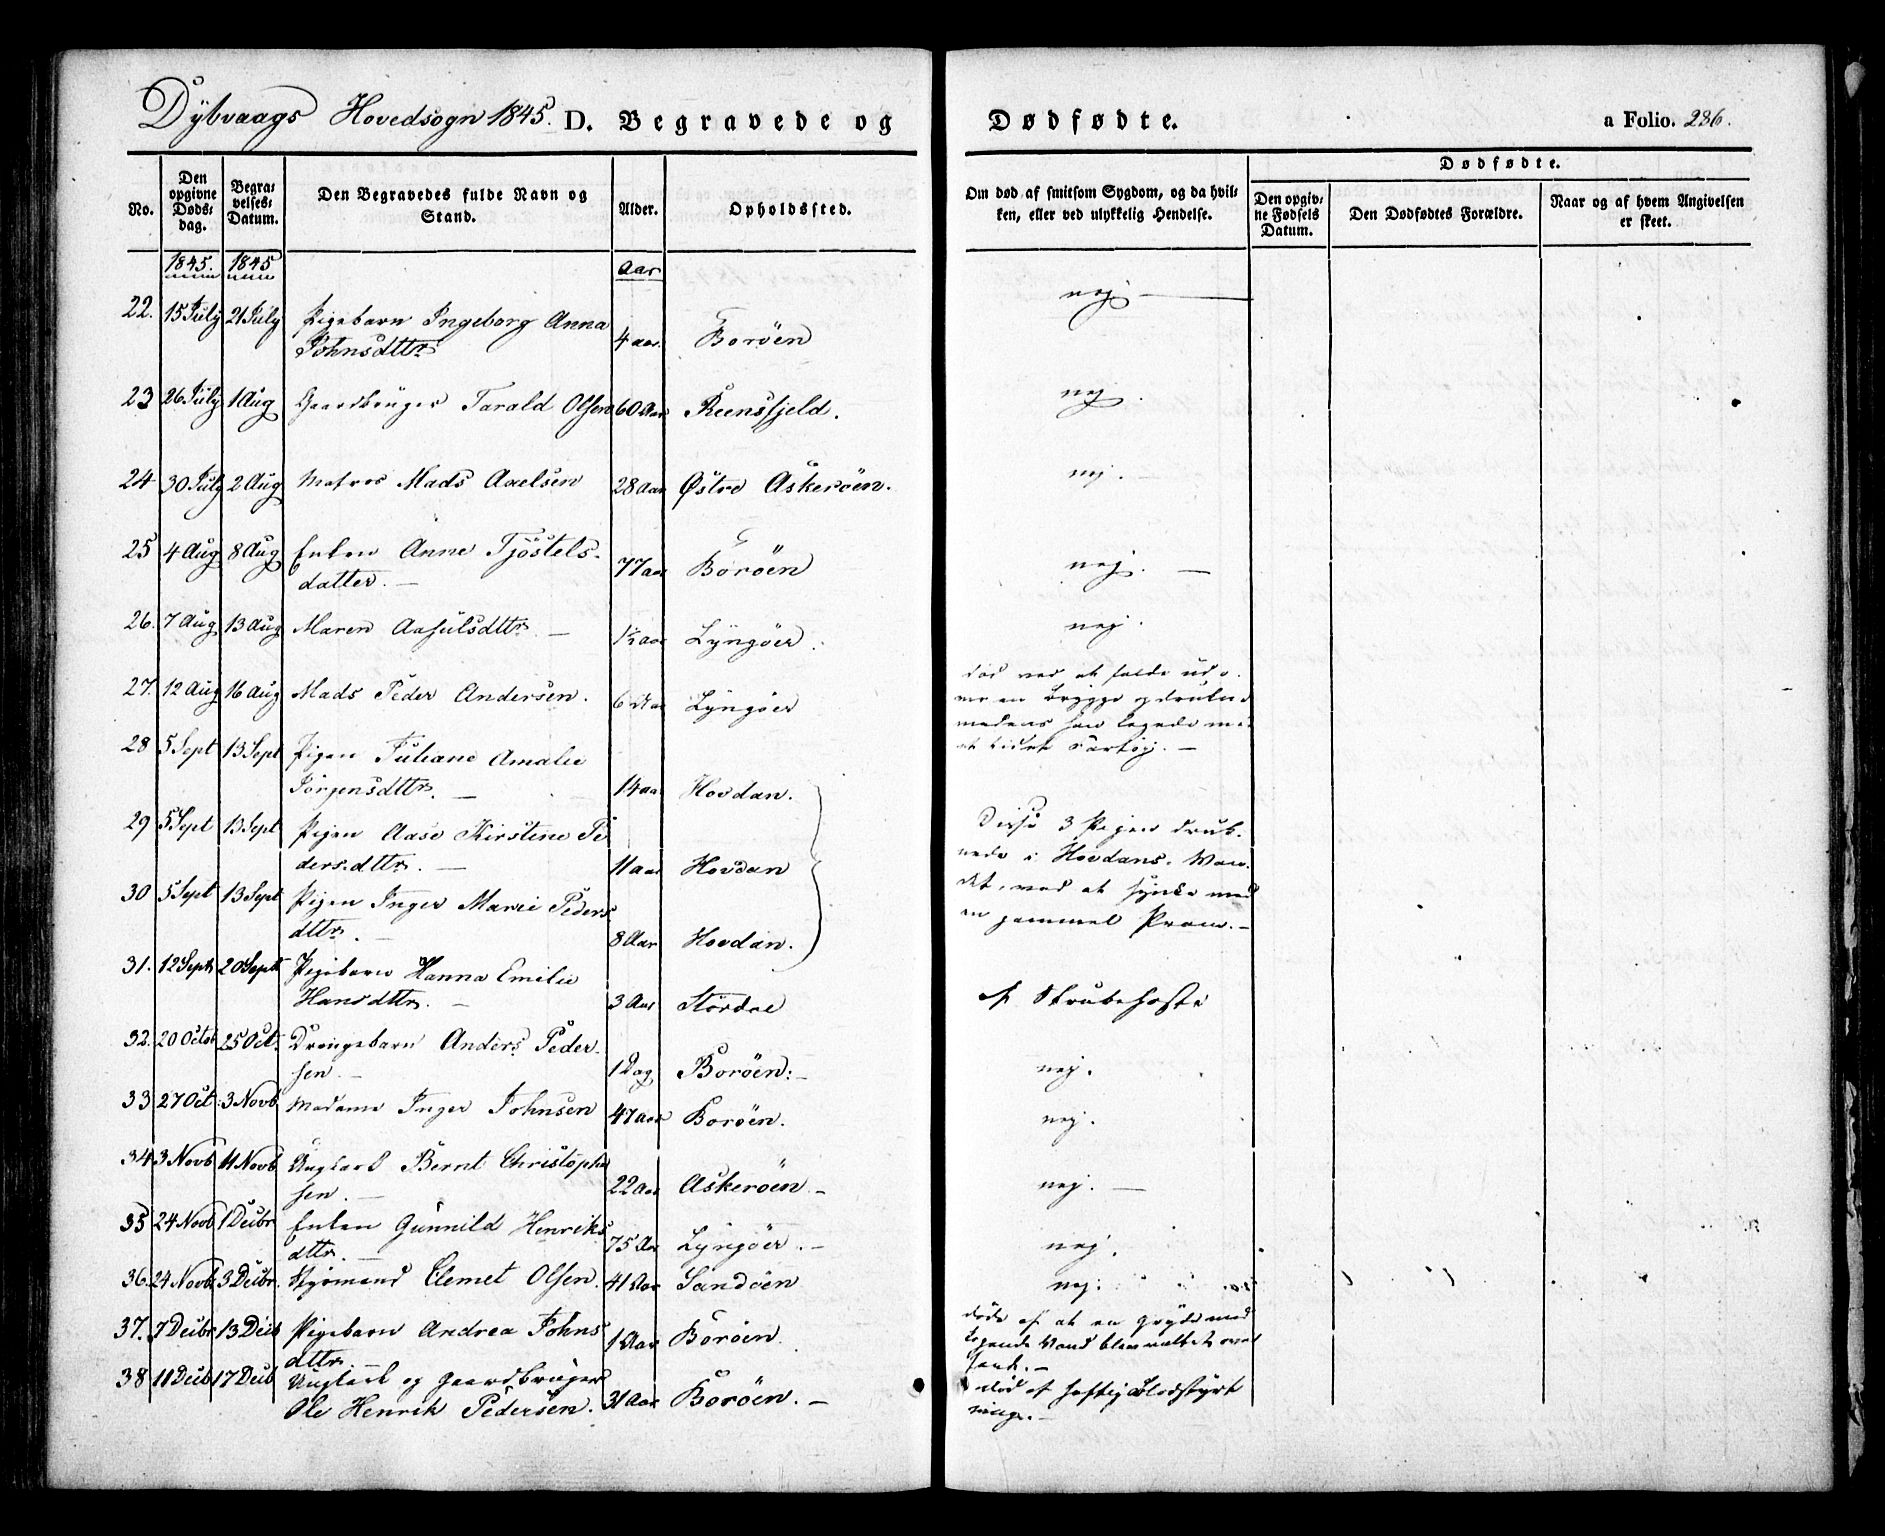 Dybvaags Hovedsogn 1845. D. Begravede og Dødfødte. a Folio. 286.
No. | Den opgivne Døds-dag. | Begra-velses-Datum. | Den Begravedes fulde Navn og Stand. | Alder. | Opholdssted. | Om død af smitsom Sygdom, og da hvil-ken, eller ved ulykkelig Hendelse. | Dødfødte. | Den opgiv-ne Fødsels Datum. | Den Dødfødtes Forældre. | Naar og af hvem Angivelsen er skeet.
1845. 1845 Aar
22. 15 July 21 July Pigebarn Ingeborg Anna
Johnsdttr 4 aar. Boröen nej
23 26 July 1 Aug Gaardbruger Tarald Olsen 60 Aar Reensfjeld. nej.
24 30 July 2 Aug Matros Mads Axelsen 28 Aar Østre Askeröen. nej.
25 4 Aug 8 Aug Enken Anne Tjöstels-
datter. 77 aar Boröen nej.
26. 7 Aug 13 Aug Maren Aasulsdttr 1½ aar Lyngöer. nej.
27. 12 Aug 16 Aug Mads Peder Andersen. 6 Aar Lyngöer
död ved at falde ud o-
ver en Brygge og drukne
medens han legede med
et lidet Fartøj.
28 5 Sept 13 Sept Pigen Juliane Amalie
Jörgensdttr. 14 aar Hovdan.
29 5 Sept 13 Sept Pigen Aase Kirstine Pe
dersdttr. 11 aar Hovdan
30 5 Sept 13 Sept Pigen Inger Marie Peders
dttr. 8 Aar Hovdan.
Disse 3 Pigen druk-
nede i Hovdans. Van-
det, ved at synke med
en gammel Pram.
31. 12 Sept 20 Sept Pigebarn Hanna Emilie
Hansdttr. 3 Aar Stördoe af Strubehoste
32. 20 Octob 25 Oct. Drengebarn Anders Peder-
sen. 1 Dag Boröen: nej.
33 27 Oct. 3 Novb Madame Inger Johnsen 47 Aar Boröen. nej.
34 3 Novb 11 Novb Ungkarl Bernt Christophe
sen. 22 aar Askeröen. nej.
35 24 Novb 1 Decbr Enken Gunnild Henriks
dttr. 75 Aar Lyngöer. nej.
36. 24 Novb. 3 Decbr. Styrmand Clemet Olsen. 41 Aar Sandöen nej.
37. 7 Decbr 13 Decb Pigebarn Andrea Johns
dttr. 1 Aar Boröen.
döde af at en gryde med
kogende Vand blev veltet over
hende.
38 11 Decb 17 Decb Ungkarl og Gaardbruger
Ole Henrik Pedersen. 31 Aar Boröen.
död af heftig Blodstyrt
ning.